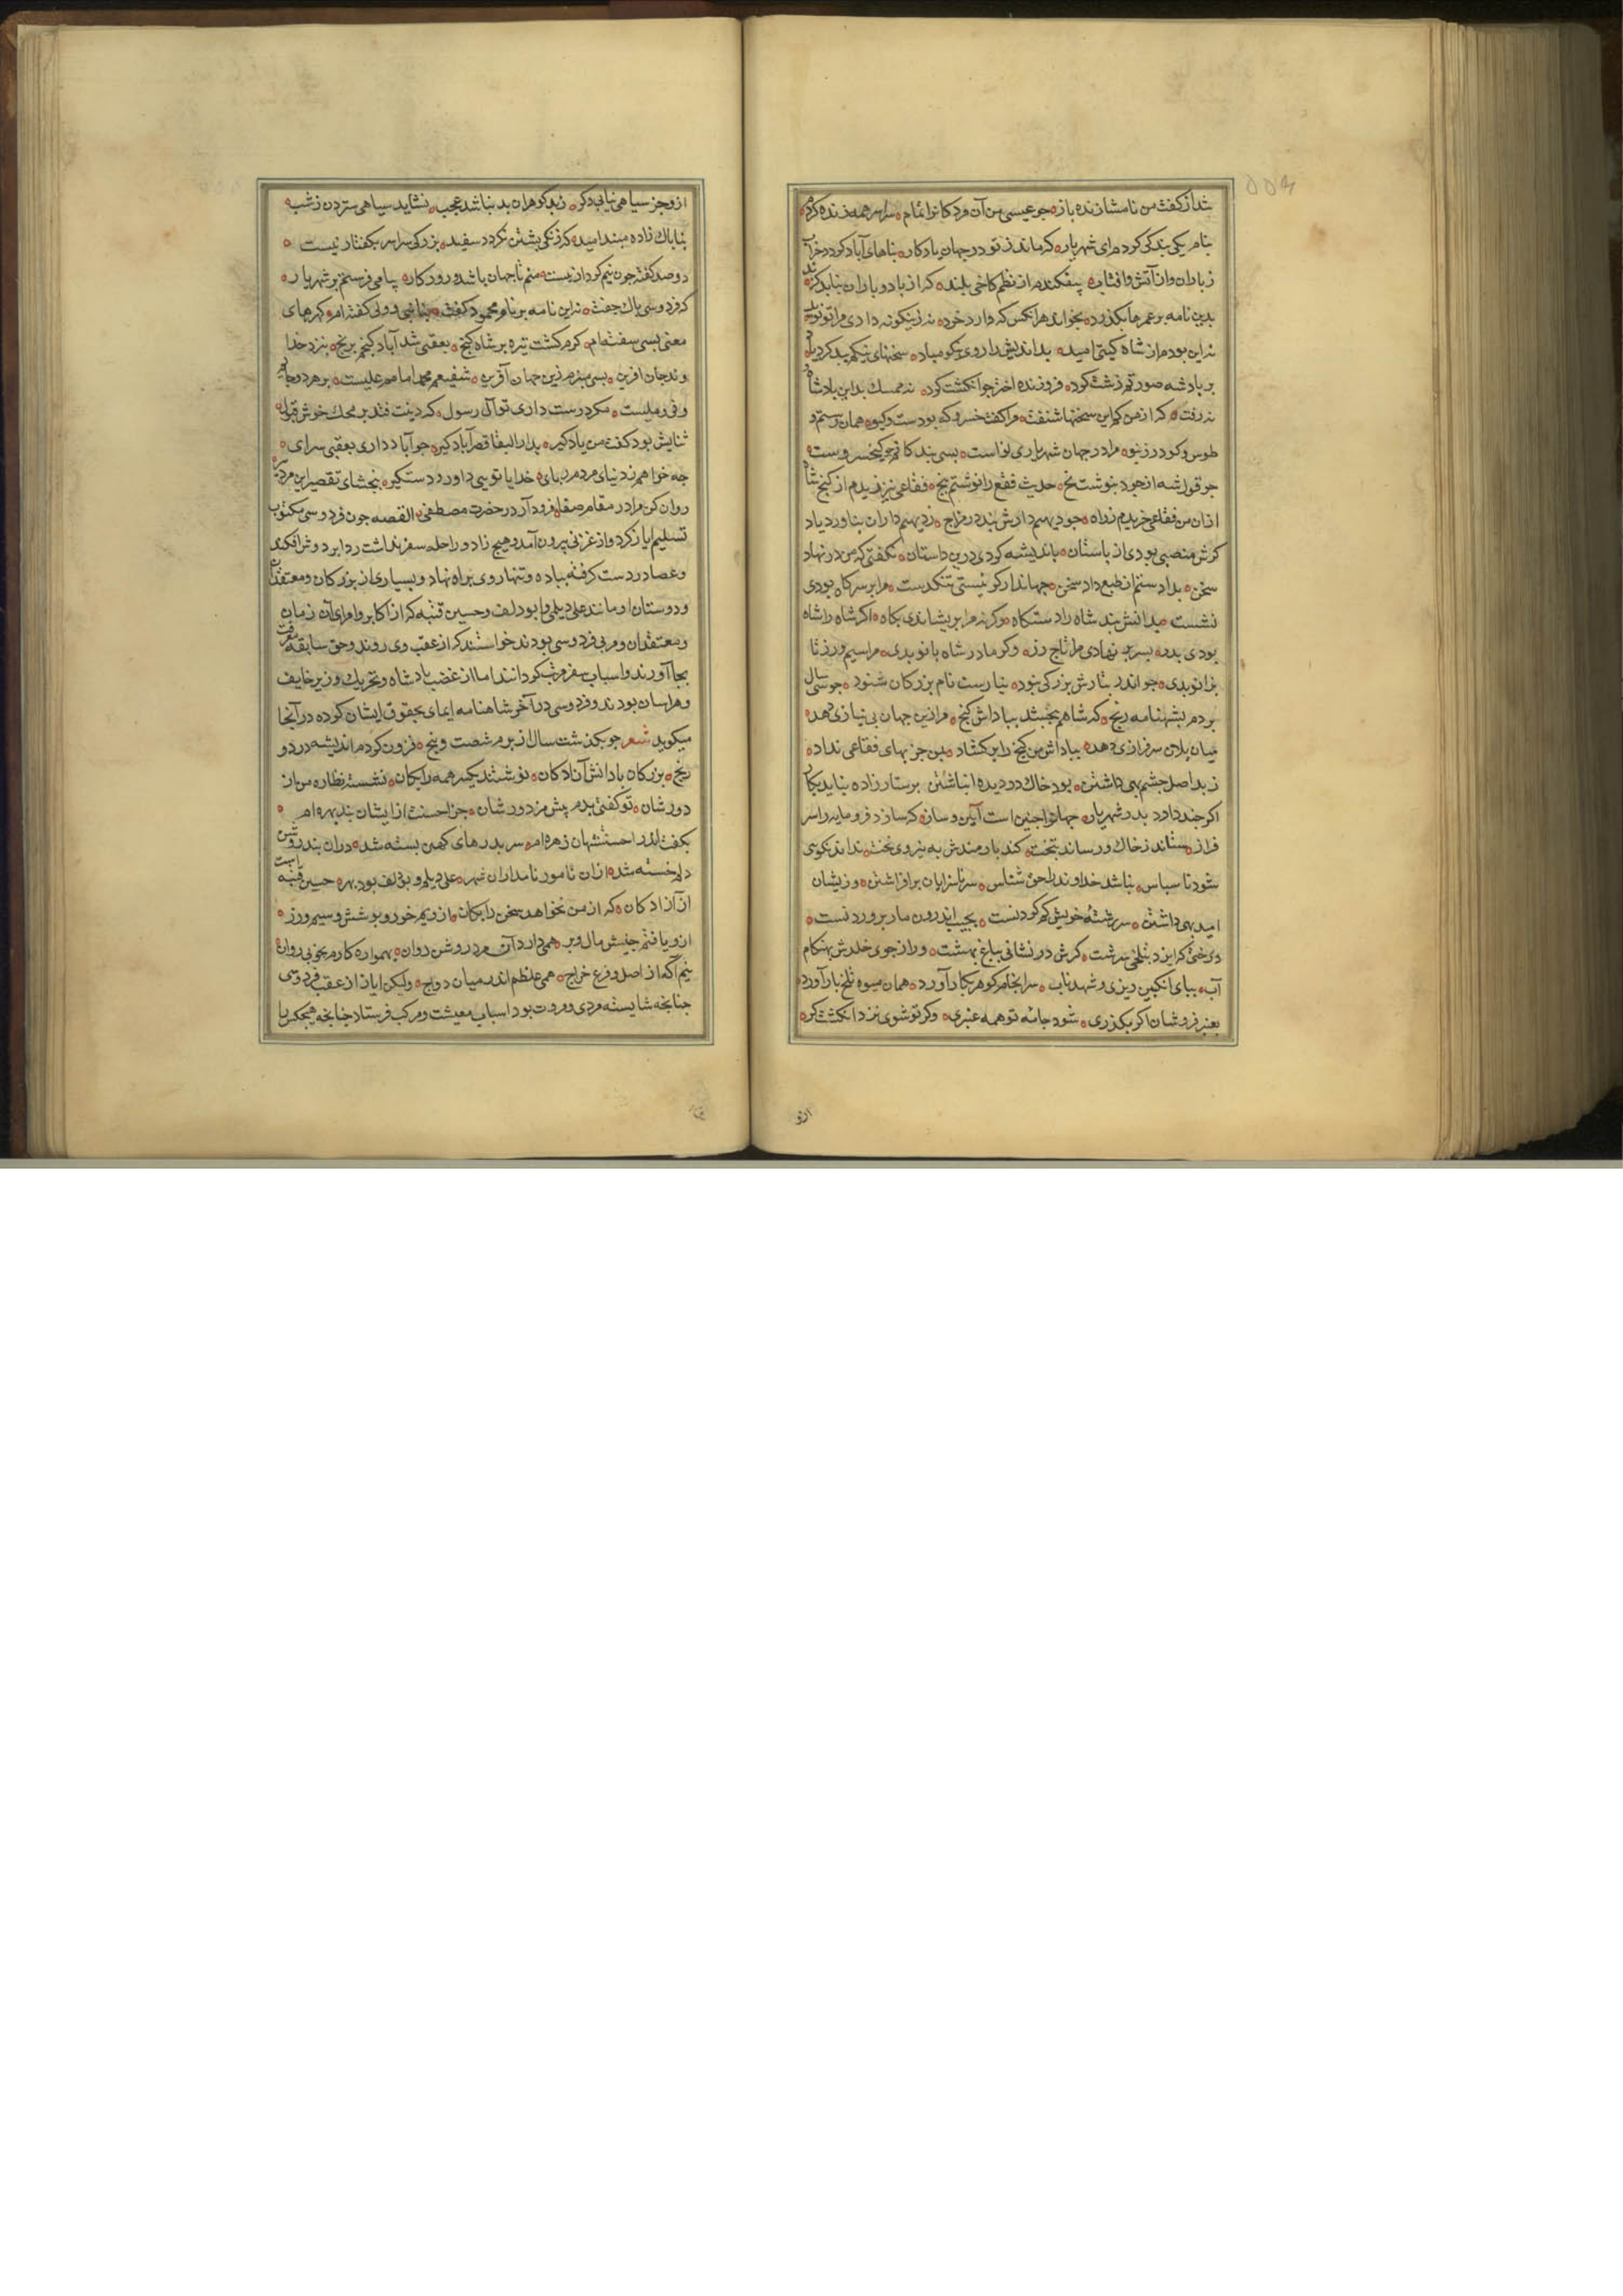 شد از کفت من نامشان زنده باز جو عیسی من آن مردکانرا تمام سراسر همه زنده کردم
بنام یکی بندکی کردم ای شهریار که ماند ز تو در جهان یادکار بناهای آباد کردد خراب
ز باران و از آتش و افتاب پیفکندم از نظم کاخی بلند که از باد و باران نیابد کزند
بدین نامه بر عمرها بکذرد بخواند هرانکس که دارد خرد نه زینکونه دادی مرا تو نوید
نه این بودم از شاه کیتی امید بداندیش را روی نیکو مباد سخنهای نیکم ببد کرد یاد
بر پادشه صورتم زشت کرد فروزنده اختر جو انکشت کرد
که از من کهاین سخنها شنفت مرا کفت خسرو که بودست و کیو همان رستم و
طوس و کودرز نیو مرا در جهان شهریاری نواست بسی بندکانم جو کیخسروست
حدیث فقع را نوشتم
ازان من فقاعی خریدم ز راه جو دیهیم دارش نبد در نژاد ز دیهیم داران نیاورد یاد
کرش منصبی بودی از باستان باندیشه کردی درین داستان نکفتی که من در نهاد
سخن بداد ستم از طبع داد سخن جهاندار کر نیستی تنکدست مرا بر سرکاه بودی
نشست بدانش نبد شاه را دستکاه وکرنه مرا بر نشاندی بکاه اکر شاه را شاه
بودی پدر بسر بر نهادی مرا تاج زر وکر مادر شاه بانو بدی مرا سیم و زر تا
بزانو بدی جو اندر تبارش بزرکی نبود نیارست نام بزرکان شنود جو سی سال
بردم بشهنامه رنج که شاهم ببخشد بپاداش کنج مرا زین جهان بی نیازی دهد
میان یلان سرفرازی دهد بپاداش من کنج را برکشاد بمن جز بهای فقاعی نداد
ز بد اصل جشم بهی داشتن بود خاک در دیده انباشتن پرستار زاده نیاید بکار
اکر جند دارد پدر شهریار جهانرا جنین است آیین و سان که سازد فرومایه را سر
فراز ستاند ز خاک و رساند بتخت کند یارمندش به نیروی بخت نداند نکوی
شود ناسپاس نباشد خداوند را حق شناس سر ناسزایان برافراشتن وزیشان
امید بهی داشتن سر رشتهٔ خویش کم کردنست بجیب اندرون مار پروردنست
درختی کر ایزد بتلخی سرشت کرش در نشانی بباغ بهشت ور از جوی خلدش بهنکام
آب ببای انکبین ریزی و شهد ناب سرانجام کوهر بکار آورد همان میوه تلخ بار آورد
بعنبر فروشان اکر بکذری شود جامه تو همه عنبری وکر تو شوی نزد انکشت کر
ازو
ازو جز سیاهی نیابی دکر ز بد کوهران بد نباشد عجب نشاید سیاهی ستردن ز شب
بناپاک زاده مبند امید که زنکی بشستن نکردد سفید بزرکی سراسر بکفتار نیست
دوصد کفته جون نیم کردار نیست منم تا جهان باشد و روزکار پیامی فرستم بر شهریار
که فردوسی پاک جفت نه این نامه بر نام محمود کفت بنام نبی و ولی کفته ام کهرهای
معنی بسی سفته ام کرم کشت تیره بر شاه کنج بعقبی شد آباد کنجم برنج بنزد خدا
وند جان آفرین بسی بهترم زین جهان آفرین شفیعم محمد امامم علیست بهر دو
مکر دوست داری تو آل رسول که دینت فتد بر محک خوش قبول
کفت من یادکیر بدارالبقا قصر آباد کیر جو آباد داری بعقبی سرای
جه خواهم ز دنیای مردم ربای خدایا تویی داور و دستکیر ببخشای تقصیر این مرد پیر
روان کن مرا در مقام صفا فرود آر در حضرت مصطفی القصه جون فردوسی مکتوب
تسلیم ایاز کرد و از غزنی بیرون آمد و هیچ زاد و راحله سفر نداشت ردا بر دوش افکند
و عصا در دست کرفته بیاده و تنها روی براه نهاد و بسیاری از بزرکان و معتقدان
و دوستان او مانند علی دیلمی و ابودلف و حسین قتیبه که از اکابر و امرای آن زمان
و معتقدان و مربی فردوسی بودند خواستند که از عقب وی روند و حق سابقه معرفت
بجا آورند و اسباب سفر مرتب کردانند اما از غضب پادشاه و تحریک وزیر خایف
و هراسان بودند و فردوسی در آخر شاهنامه ایمای بحقوق ایشان کرده در آنجا
میکوید شعر جو بکذشت سال از برم شصت و پنج فزون کردم اندیشه درد و
رنج بزرکان با دانش آزادکان نوشتند یکسر همه رایکان نشسته نظاره من از
دورشان تو کفتی بدم پیش مزدورشان جز احسنت ازایشان نبد بهره ام
بکفت اندر احسنتشان زهره ام سر بدرهای کهن بسته شد وزان بند روشن
دلم خسته شد ازان نامور نامداران شهر علی دیلم و بودلف راست بهر حسین قتیبه
از آزادکان که از من نخواهد سخن رایکان ازویم خور و پوشش و سیم و زر
ازو یافتم جنبش مال و بر همی دارد آن مرد روشن روان بهمواره کارم بخوبی روان
نیم آکه از اصل و فرع خراج همی غلطم اندر میان دواج ولیکن ایاز از عقب فردوسی
جنانجه شایسته مردی و مروت بود اسباب معیشت و مرکب فرستاد جنانجه هیجکس را